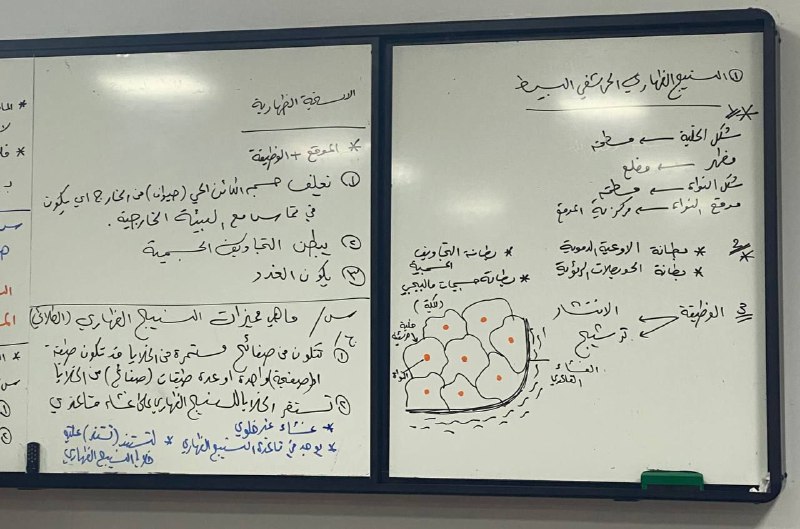 الانسجة الظهارية
* الموقع + الوظيفة
① تغلف جسم الكائن الحي (حيوان) من الخارج اي يكون
في تماس مع البيئة الخارجية.
② يبطن التجاويف الجسمية
③ يكون الغدد
س/ ما هي مميزات النسيج الظهاري (الطلائي)
ج/
① تتكون من صفائح مستمرة من الخلايا قد تكون طبقة
او صفيحة واحدة او عدة طبقات (صفائح) من الخلايا
② تستقر الخلايا للنسيج الظهاري على غشاء قاعدي
* غشاء غير خلوي
* يوجد في قاعدة النسيج الظهاري * لتستند (تستند) عليه
خلايا النسيج الظهاري
① النسيج الظهاري الحرشفي البسيط
شكل الخلية ← مسطحة
مظهر ← مضلع
شكل النواة ← مسطحة
موقع النواة ← مركزية الموقع
2
* بطانة الاوعية الدموية * بطانة التجاويف
الجسمية
* بطانة الحويصلات الرئوية * بطانة جسيمات مالبيجي
(الكلية)
3 الوظيفة
الانتشار
ترشيح
خلية
النواة
الغشاء
القاعدي